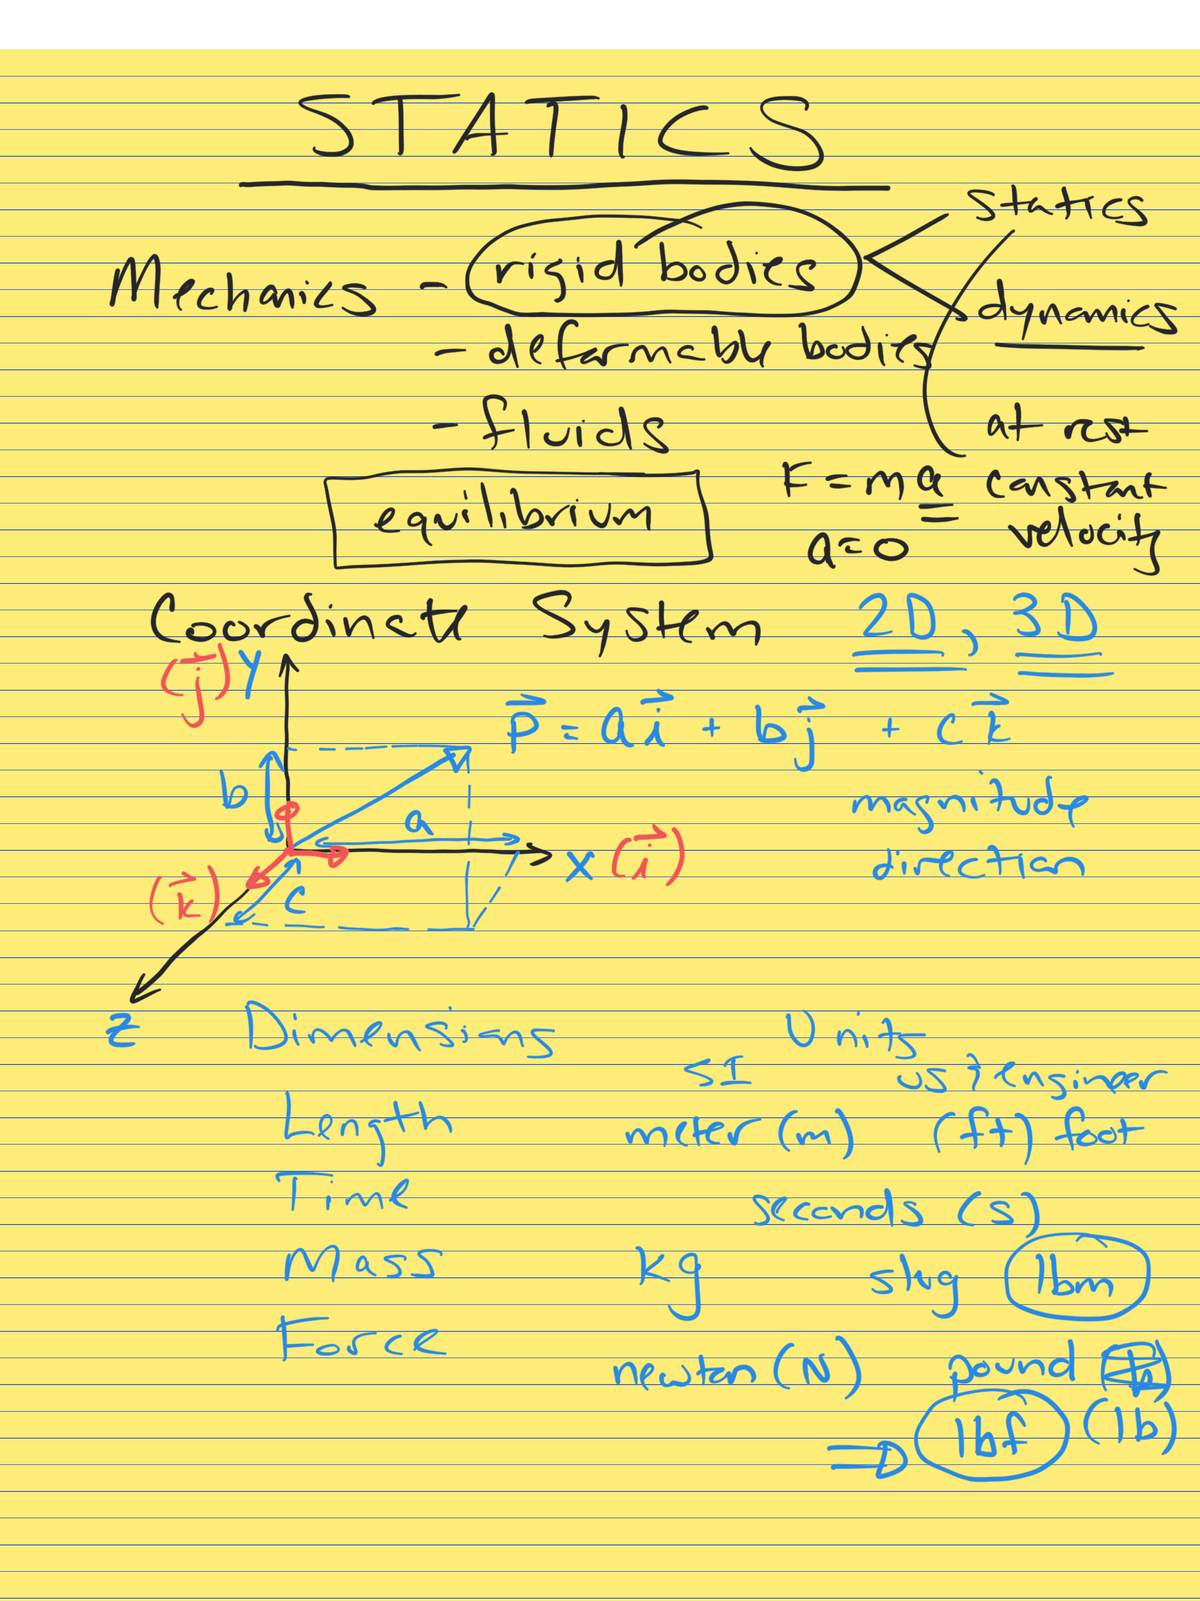 STATICS
statics
Mechanics - rigid bodies
dynamics
- deformable bodies
at rest
- fluids
F = ma constant
equilibrium
a=0 velocity
Coordinate System 2D, 3D
(j⃗) y
p⃗ = a i⃗ + b j⃗ + c k⃗
b
magnitude
a
direction
x (i⃗)
(k⃗)
c
z
Dimensions Units
SI US & engineer
Length meter (m) (ft) foot
Time seconds (s)
Mass kg slug lbm
Force newton (N) pound
⇒ lbf (lb)